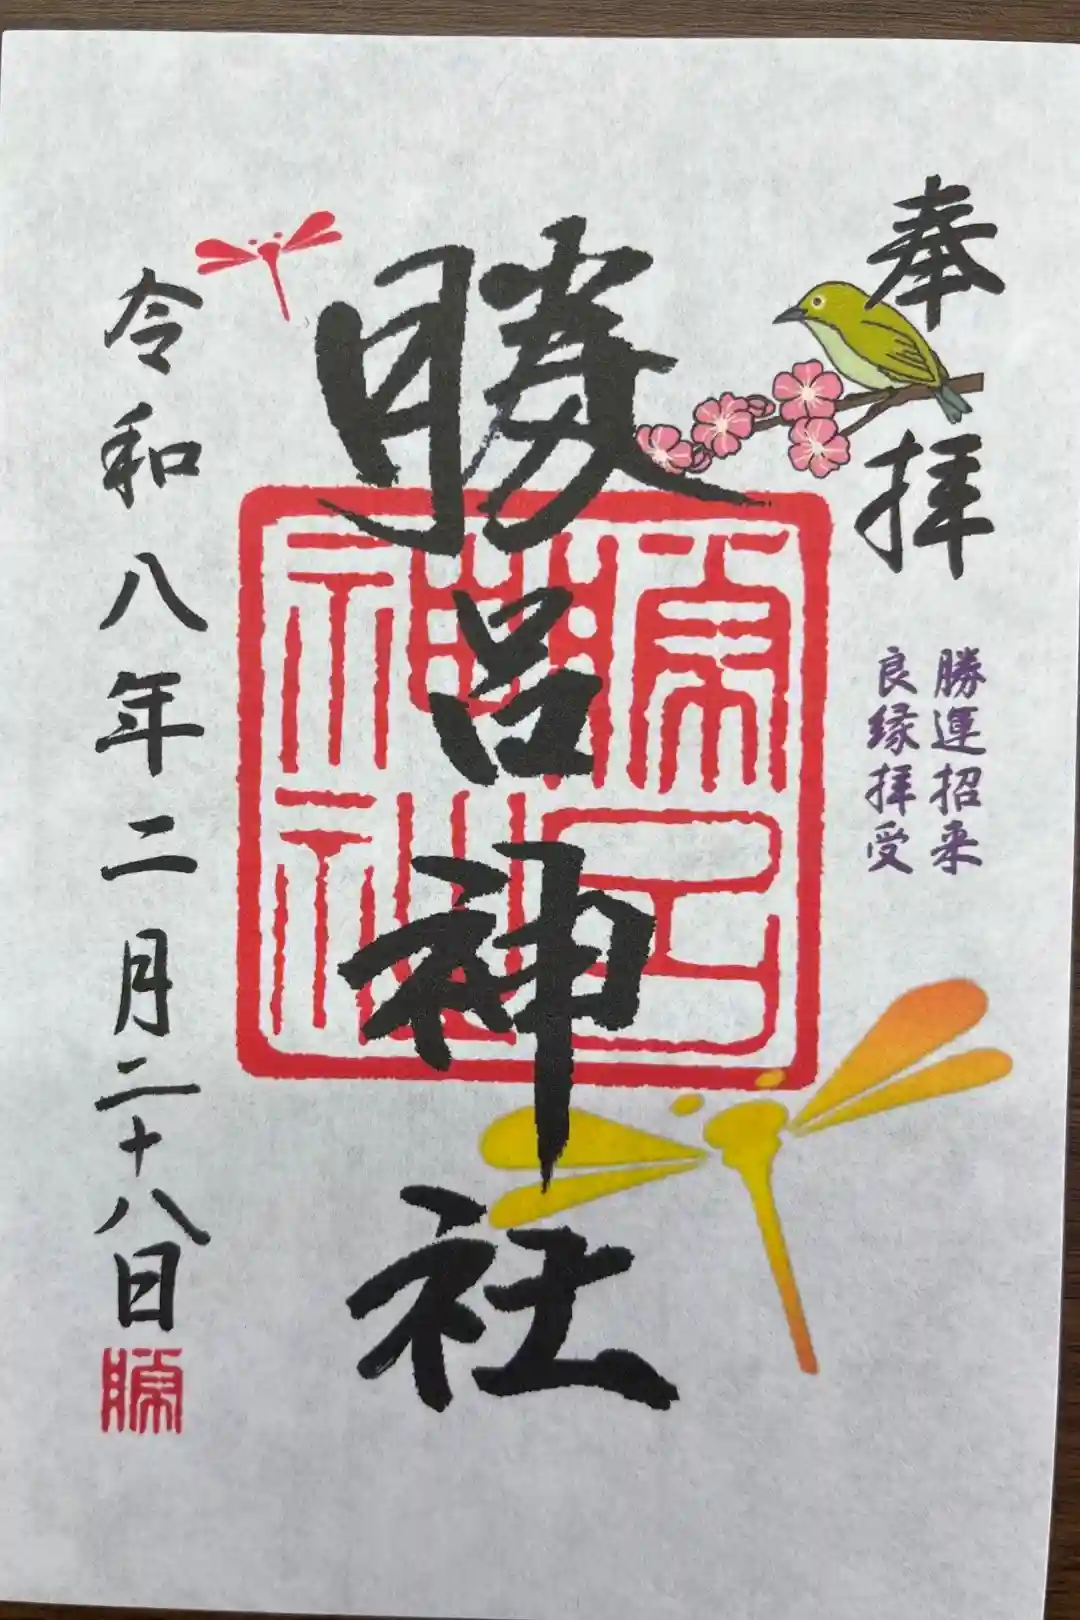 奉拝
勝運招来
良縁拝受
勝呂神社
勝呂神社
令和八年二月二十八日
勝